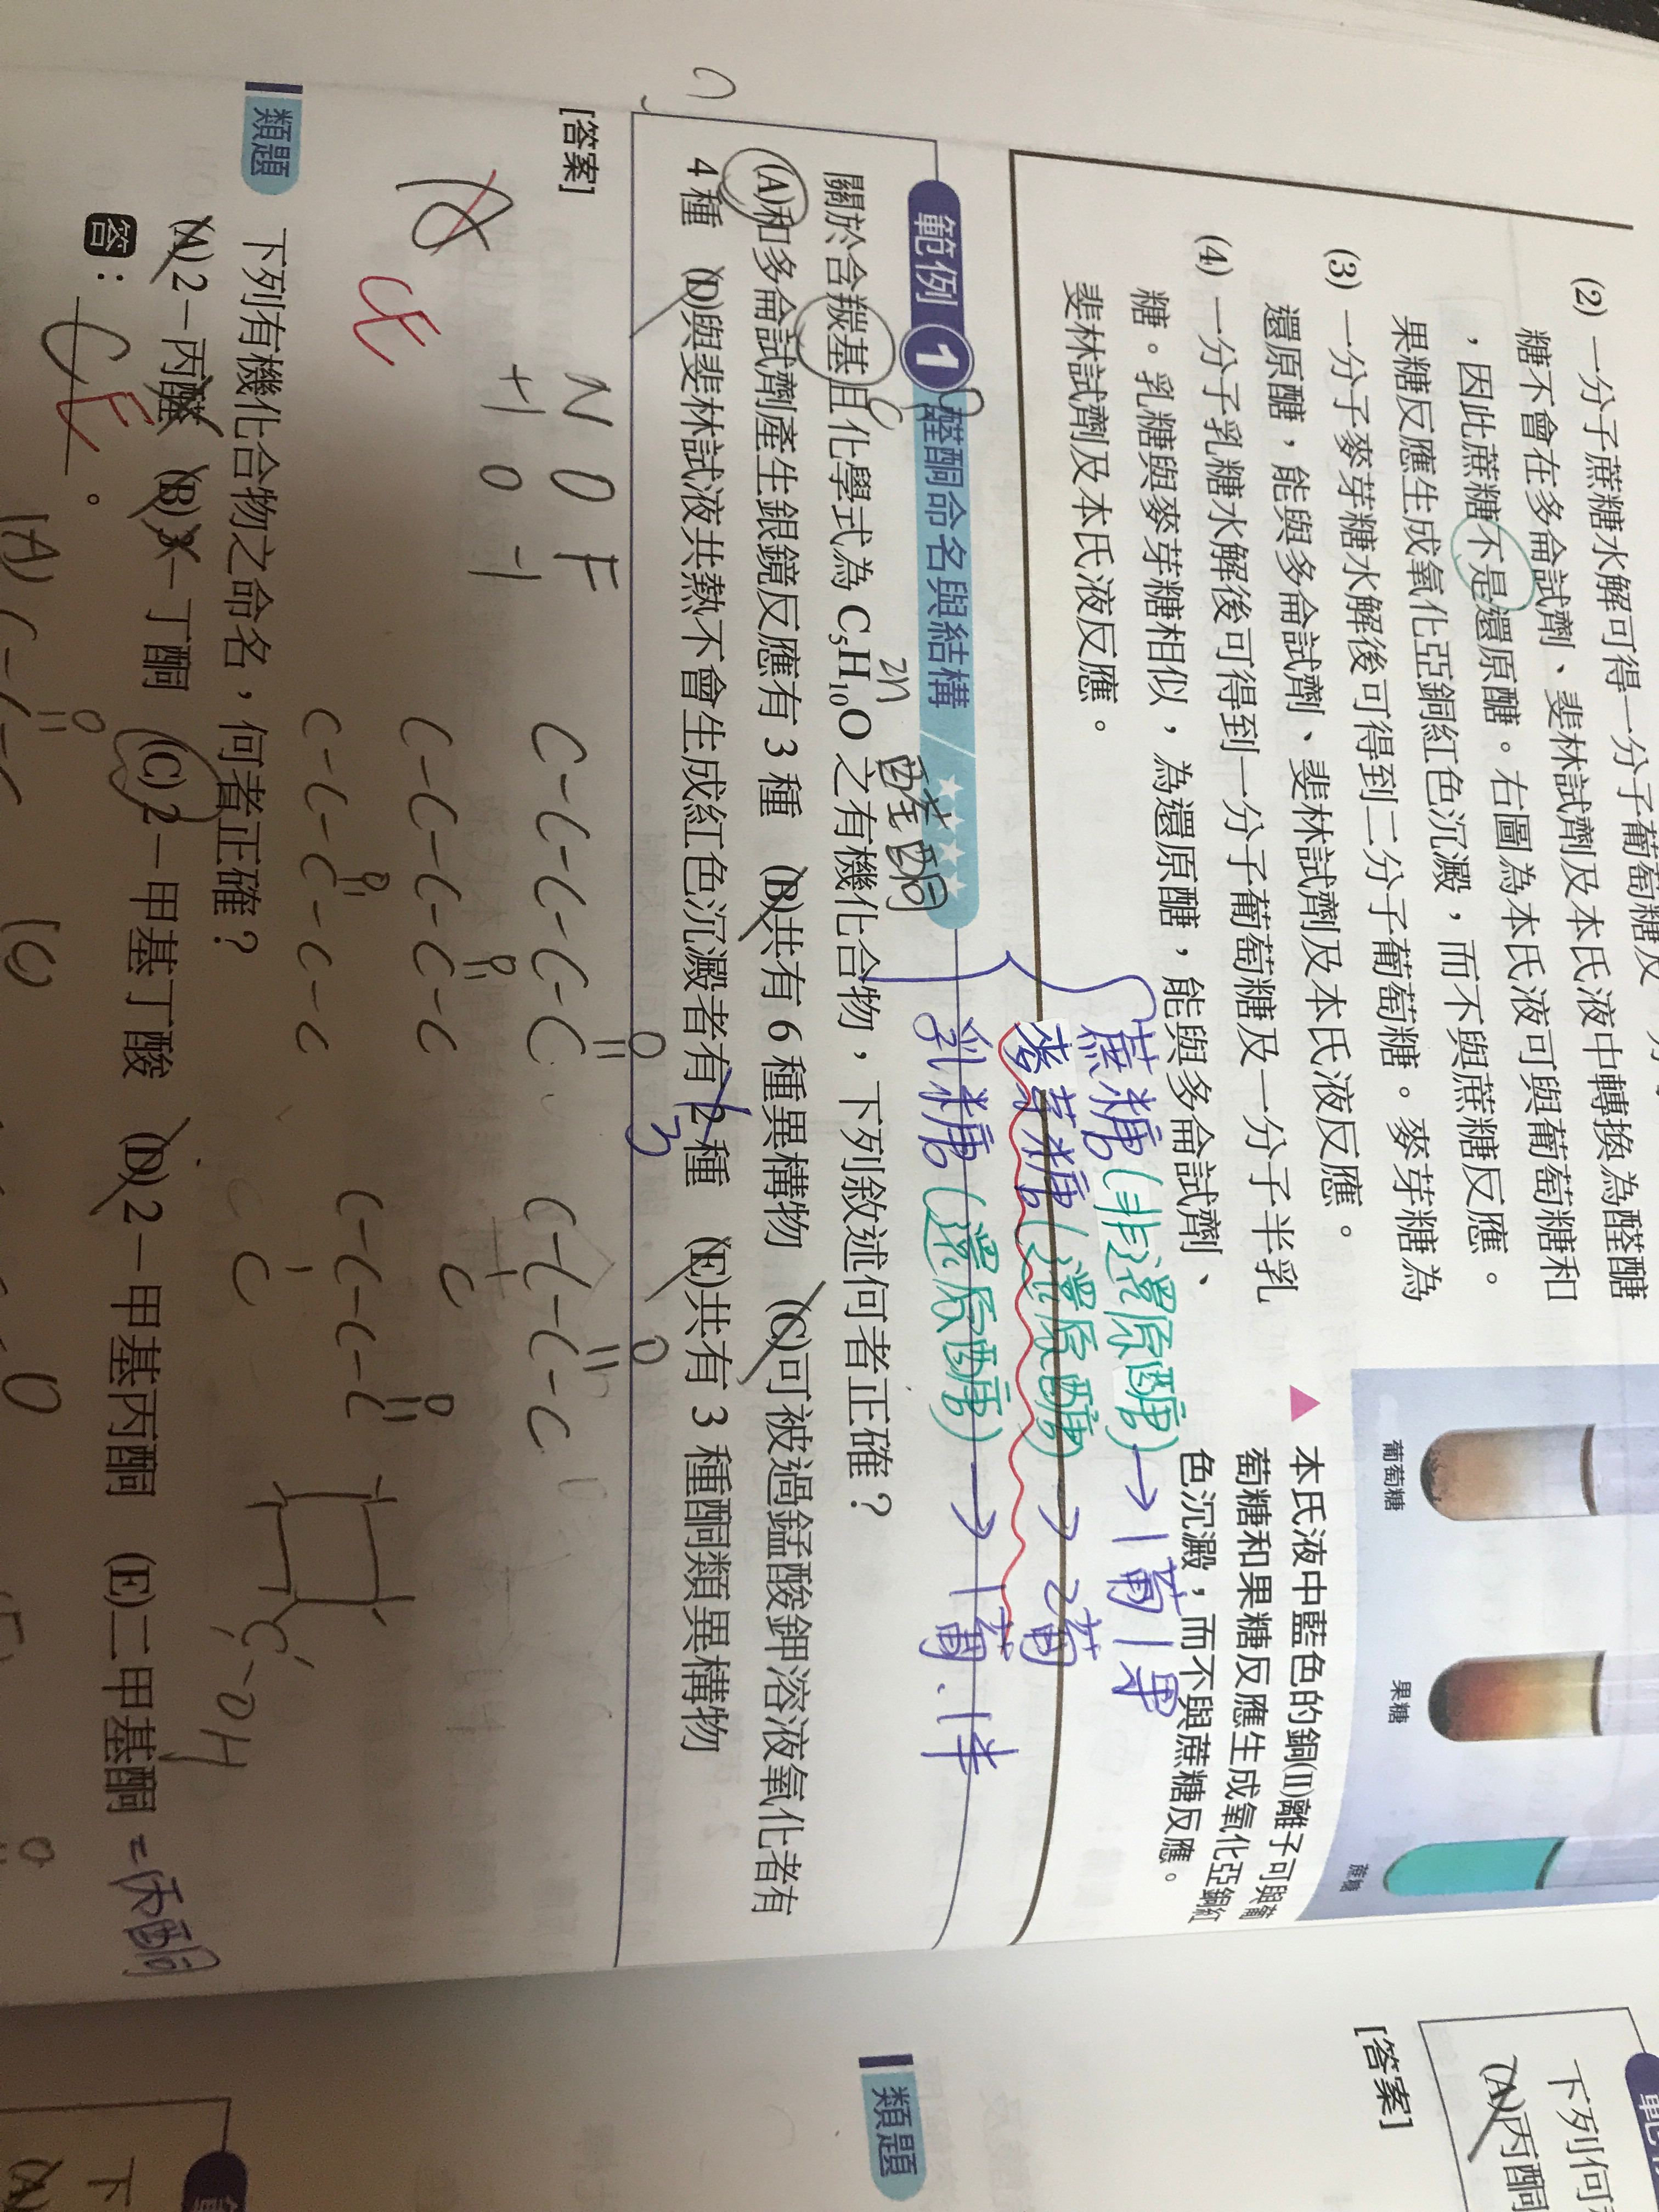 (2) 一分子蔗糖水解可得一分子葡萄糖及
糖不會在多侖試劑、斐林試劑及本氏液中轉換為醛醣
，因此蔗糖不是還原醣。右圖為本氏液可與葡萄糖和
果糖反應生成氧化亞銅紅色沉澱，而不與蔗糖反應。
(3) 一分子麥芽糖水解後可得到二分子葡萄糖。麥芽糖為
還原醣，能與多侖試劑、斐林試劑及本氏液反應。
(4) 一分子乳糖水解後可得到一分子葡萄糖及一分子半乳
糖。乳糖與麥芽糖相似，為還原醣，能與多侖試劑、
斐林試劑及本氏液反應。
葡萄糖
果糖
蔗糖
▲ 本氏液中藍色的銅(II)離子可與葡
萄糖和果糖反應生成氧化亞銅紅
色沉澱，而不與蔗糖反應。
蔗糖(非還原醣)→1葡1果
麥芽糖(還原醣)→2葡
乳糖(還原醣)→1葡、1半
範例 1 醛酮命名與結構 ／★★★★
2n
醛酮
關於含羰基且化學式為 C₅H₁₀O 之有機化合物，下列敘述何者正確？
(A)和多侖試劑產生銀鏡反應有 3 種 (B)共有 6 種異構物 (C)可被過錳酸鉀溶液氧化者有
4 種 (D)與斐林試液共熱不會生成紅色沉澱者有 2 種 (E)共有 3 種酮類異構物
3
[答案]
A
CE
N O F
+1 0 -1
C-C-C-C-C
O
C-C-C-C
O
C
C-C-C-C-C
O
C-C-C-C
O
C
C-C-C-C-C
O
C-OH
類題
下列有機化合物之命名，何者正確？
(A)2－丙醛 (B)3－丁酮 (C)2－甲基丁酸 (D)2－甲基丙酮 (E)二甲基酮
=丙酮
答：CE。
(A)
[答案]
下列何
(A)丙酮
類題
下
(A)